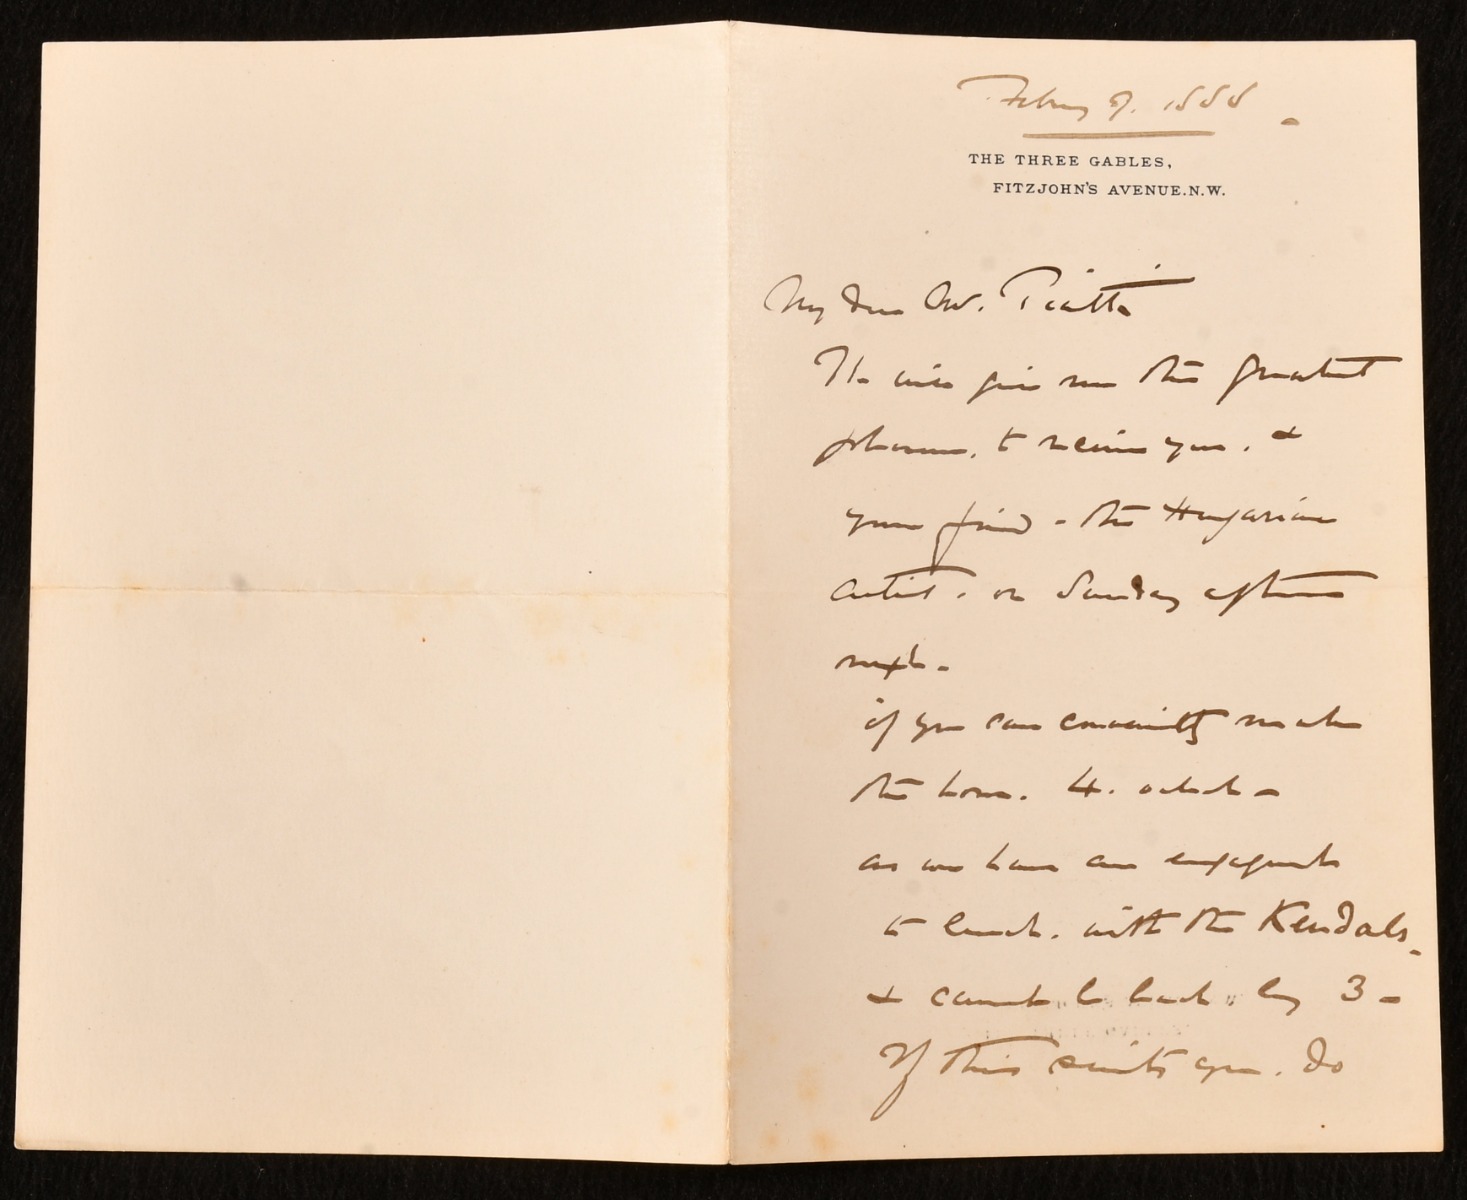 Febrary 9. 1888
THE THREE GABLES,
FITZJOHN'S AVENUE.N.W.
My dear Mr. Piatti
It will give me the greatest
pleasure, to receive you. &
your friend - the Hungarian
artist. on Sunday afternoon
next -
if you can conveniently make
the hour. 4. o'clock -
as we have an engagement
to lunch. with the Kendals.
& cannot be back by 3 -
If this suits you. do